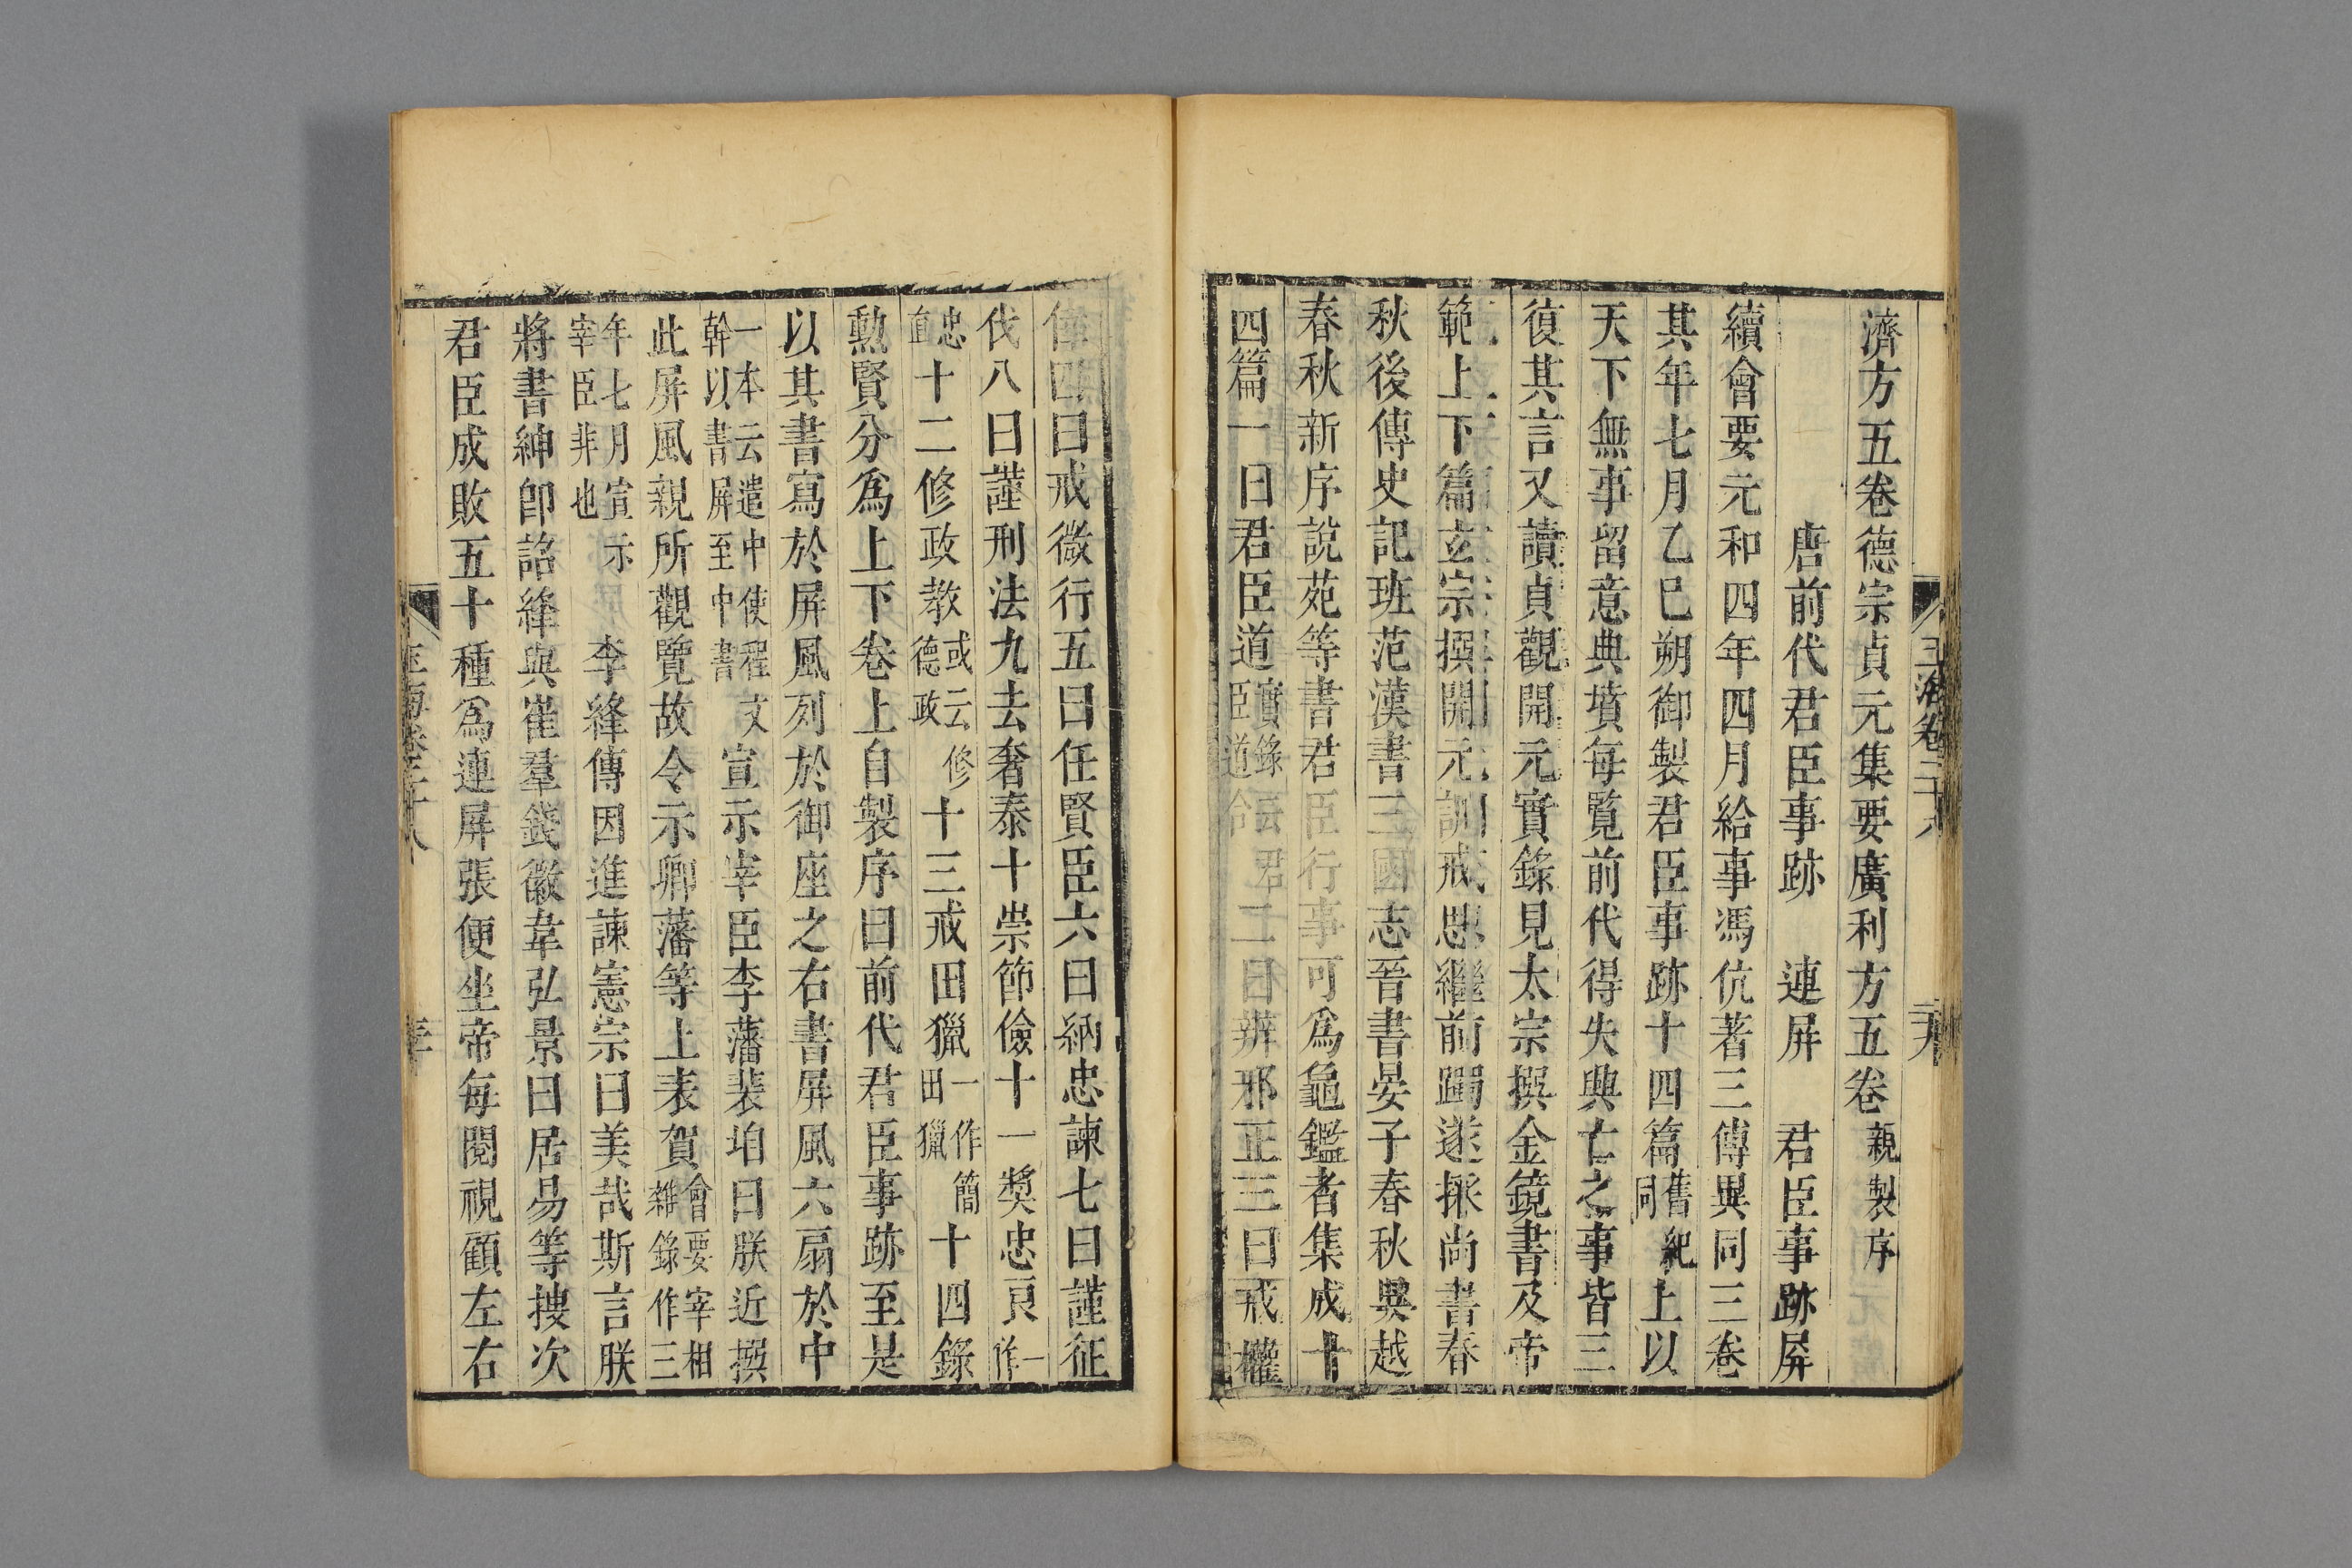 玉海卷二十八
二十九
濟方五卷德宗貞元集要廣利方五卷親製序
唐前代君臣事跡　連屏　君臣事跡屏
續會要元和四年四月給事馮伉著三傳異同三卷
其年七月乙巳朔御製君臣事跡十四篇舊紀同上以
天下無事留意典墳每覽前代得失興亡之事皆三
復其言又讀貞觀開元實錄見太宗撰金鏡書及帝
範上下篇玄宗撰開元訓戒思繼前躅遂採尚書春
秋後傳史記班范漢書三國志晉書晏子春秋吳越
春秋新序說苑等書君臣行事可為龜鑑者集成十
四篇一曰君臣道實錄云君臣道合二曰辨邪正三曰戒權
倖四曰戒微行五曰任賢臣六曰納忠諫七曰謹征
伐八曰謹刑法九去奢泰十崇節儉十一獎忠良一作
忠直十二修政教或云修德政十三戒田獵一作簡田獵十四錄
勳賢分為上下卷上自製序曰前代君臣事跡至是
以其書寫於屏風列於御座之右書屏風六扇於中
一本云遣中使程文幹以書屏至中書宣示宰臣李藩裴垍曰朕近撰
此屏風親所觀覽故令示卿藩等上表賀會要宰相雜錄作三
年七月宣示宰臣非也　李絳傳因進諫憲宗曰美哉斯言朕
將書紳卽詔絳與崔羣錢徽韋弘景白居易等搜次
君臣成敗五十種為連屏張便坐帝每閱視顧左右
玉海卷二十八
三十